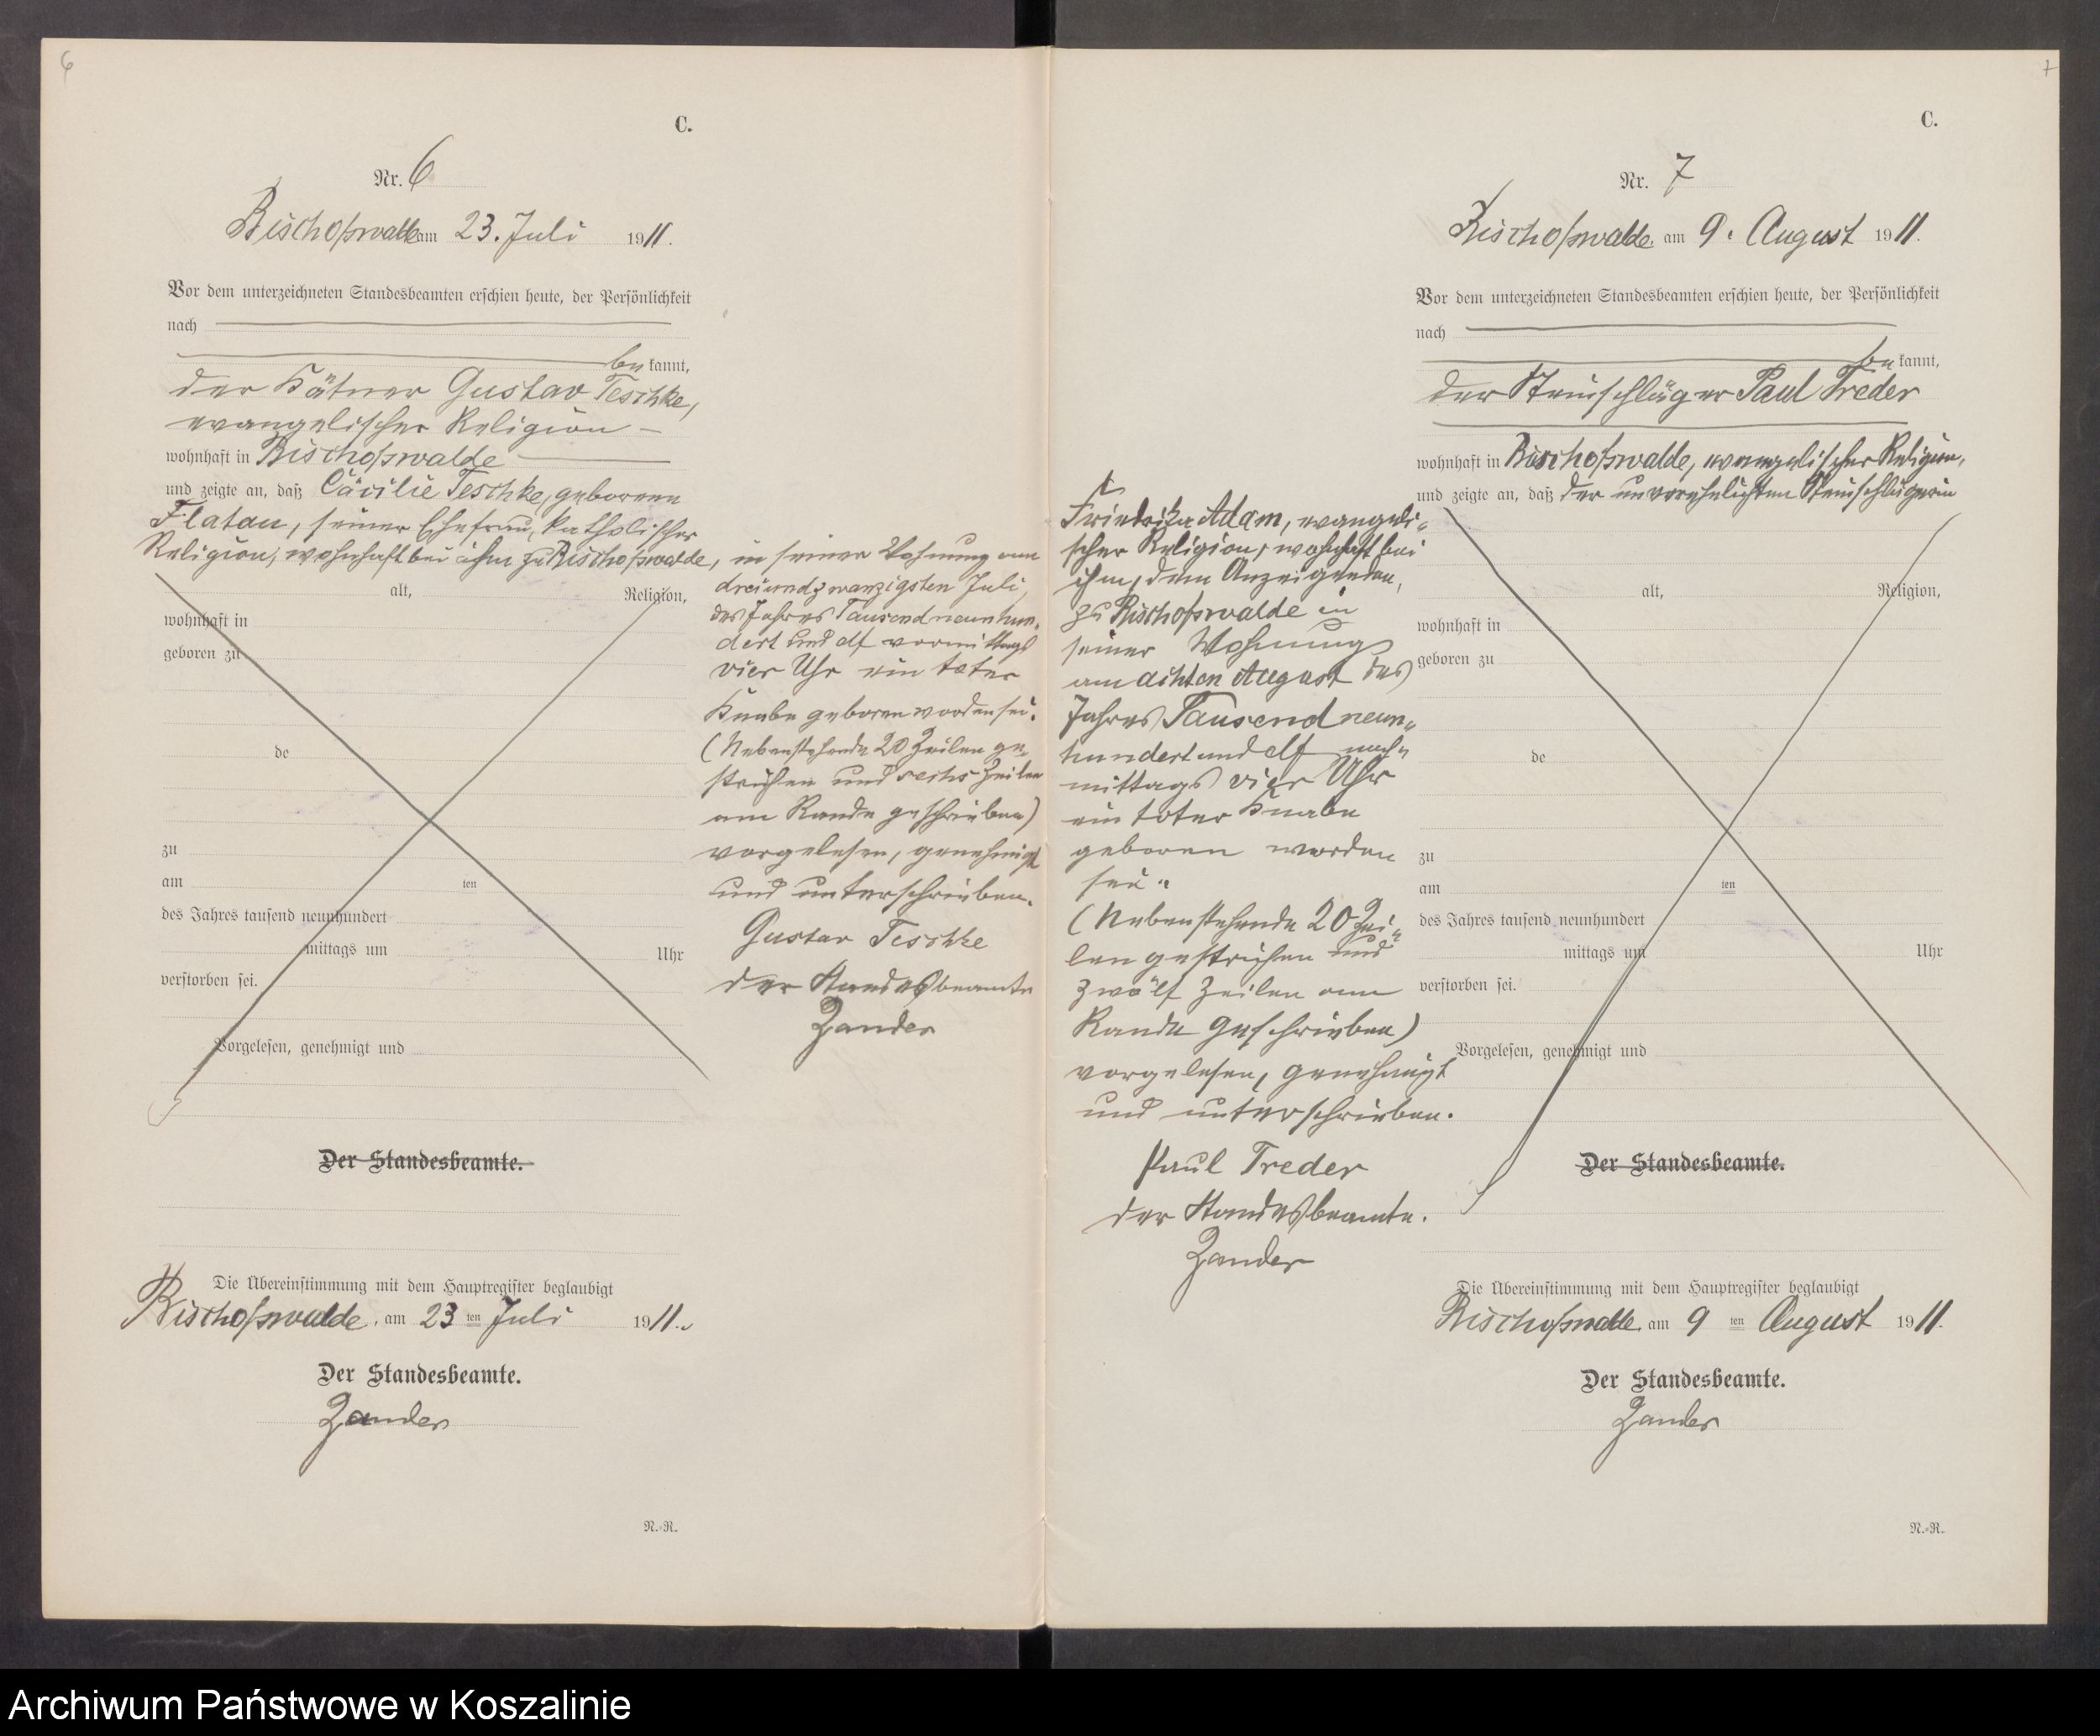 6
C.
Nr. 6
Bischofswalde am 23. Juli 1911.
Vor dem unterzeichneten Standesbeamten erschien heute, der Persönlichkeit
nach
be kannt,
der Kätner Gustav Teschke,
evangelischer Religion –
wohnhaft in Bischofswalde
und zeigte an, daß Cäcilie Teschke, geborene
Flatau, seiner Ehefrau, katholischer
Religion, wohnhaft bei ihm zu Bischofswalde, in seiner Wohnung am
dreiundzwanzigsten Juli,
des Jahres Tausend neunhun-
dert und elf vormittags
vier Uhr ein toter
Knabe geboren worden sei.
(Nebenstehende 20 Zeilen ge-
strichen und sechs Zeilen
am Rande geschrieben)
vorgelesen, genehmigt
und unterschrieben.
Gustav Teschke
der Standesbeamte
Zander
alt, Religion,
wohnhaft in
geboren zu
de
zu
am ten
des Jahres tausend neunhundert
mittags um Uhr
verstorben sei.
Vorgelesen, genehmigt und
Der Standesbeamte.
Die Übereinstimmung mit dem Hauptregister beglaubigt
Bischofswalde, am 23 ten Juli 1911.
Der Standesbeamte.
Zander
N.-R.
7
C.
Nr. 7
Bischofswalde am 9. August 1911.
Vor dem unterzeichneten Standesbeamten erschien heute, der Persönlichkeit
nach
be kannt,
der Steinschläger Paul Treder
wohnhaft in Bischofswalde, evangelischer Religion,
und zeigte an, daß der unverehelichten Steinschlägerin
Friedrike Adam, evangeli-
scher Religion, wohnhaft bei
ihm, dem Anzeigenden,
zu Bischofswalde in
seiner Wohnung
am achten August des
Jahres Tausend neun-
hundert und elf nach-
mittags vier Uhr
ein toter Knabe
geboren worden
sei.
(Nebenstehende 20 Zei-
len gestrichen und
zwölf Zeilen am
Rande geschrieben)
vorgelesen, genehmigt
und unterschrieben.
Paul Treder
der Standesbeamte.
Zander
alt, Religion,
wohnhaft in
geboren zu
de
zu
am ten
des Jahres tausend neunhundert
mittags um Uhr
verstorben sei.
Vorgelesen, genehmigt und
Der Standesbeamte.
Die Übereinstimmung mit dem Hauptregister beglaubigt
Bischofswalde am 9 ten August 1911.
Der Standesbeamte.
Zander
N.-R.
Archiwum Państwowe w Koszalinie